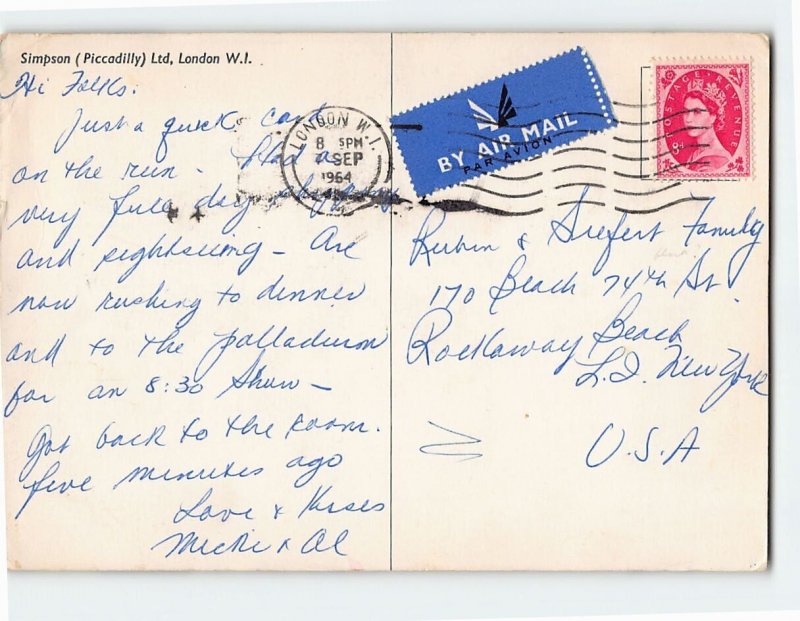 Simpson (Piccadilly) Ltd, London W.I.
Hi Folks.
Just a quick card
on the run. Had a
very full day
and sightseeing - Are
now rushing to dinner
and to the palladium
for an 8:30 Show -
Got back to the room.
five minutes ago
Love & Kisses
Micki & Al
LONDON W.1.
8 PM
SEP
1964
BY AIR MAIL
PAR AVION
POSTAGE REVENUE
8D
Rubin & Siefert Family
170 Beach 74th St.
Rockaway Beach
L.I. New York
U.S.A